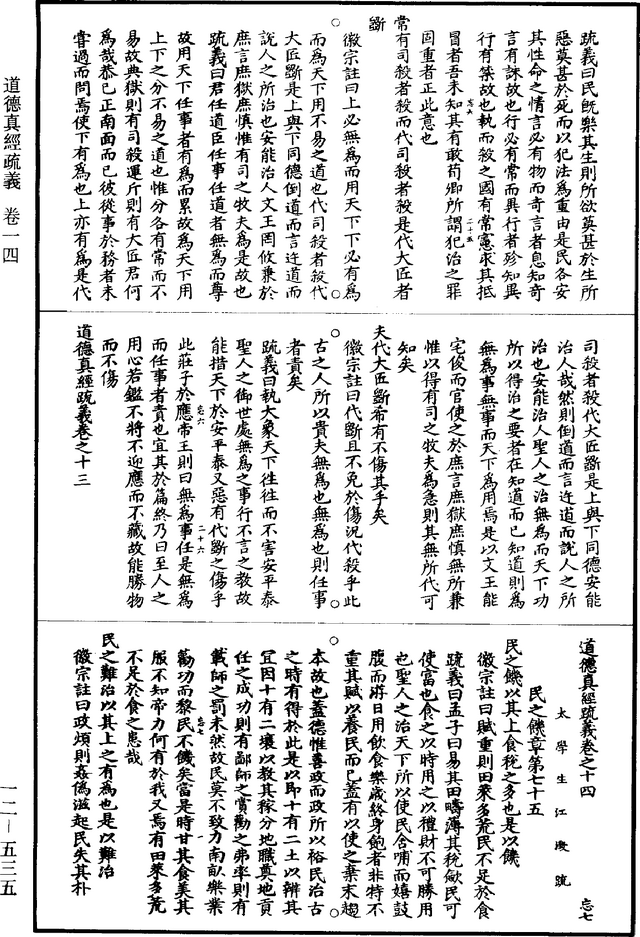 道德真經疏義 卷一四
一二—五三五
疏義曰民旣樂其生則所欲莫甚於生所
惡莫甚於死而以犯法為重由是民各安
其性命之情言必有物而奇言者息知奇
言有誅故也行必有常而異行者殄知異
行有禁故也執而殺之國有常憲求其抵
冒者吾未知其有敢荀卿所謂犯治之罪
固重者正此意也
常有司殺者殺而代司殺者殺是代大匠者
斲
徽宗註曰上必無為而用天下下必有為
而為天下用不易之道也代司殺者殺代
大匠斲是上與下同德倒道而言迕道而
說人之所治也安能治人文王罔攸兼於
庶言庶獄庶慎惟有司之牧夫為是故也
疏義曰君任道臣任事任道者無為而尊
故用天下任事者有為而累故為天下用
上下之分不易之道也惟分各有常而不
易故典獄則有司殺運斤則有大匠君何
為哉恭已正南面而已彼從事於務者未
嘗過而問焉使下有為也上亦有為是代
司殺者殺代大匠斲是上與下同德安能
治人哉然則倒道而言迕道而說人之所
治也安能治人聖人之治無為而天下功
所以得治之要者在知道而已知道則為
無為事無事而天下為用焉是以文王能
宅俊而官使之於庶言庶獄庶慎無所兼
惟以得有司之牧夫為急則其無所代可
知矣
夫代大匠斲希有不傷其手矣
徽宗註曰代斲且不免於傷況代殺乎此
古之人所以貴夫無為也無為也則任事
者責矣
疏義曰執大象天下往往而不害安平泰
聖人之御世處無為之事行不言之教故
能措天下於安平泰又惡有代斲之傷乎
此莊子於應帝王則曰無為事任是無為
而任事者責也宜其於篇終乃曰至人之
用心若鑑不將不迎應而不藏故能勝物
而不傷
道德真經疏義卷之十三
道德真經疏義卷之十四
太學生江澂疏
民之饑章第七十五
民之饑以其上食稅之多也是以饑
徽宗註曰賦重則田萊多荒民不足於食
疏義曰孟子曰易其田疇薄其稅斂民可
使富也食之以時用之以禮財不可勝用
也聖人之治天下所以使民含哺而嬉鼓
腹而游日用飲食樂歲終身飽者非特不
重其賦以養民而已蓋有以使之棄末趨
本故也蓋德惟善政而政所以裕民治古
之時有得於此是以即十有二土以辨其
宜因十有二壤以教其稼分地職奠地貢
任之成功則有鄙師之賞勸之弗率則有
載師之罰未然故民莫不致力南畝樂業
勸功而黎民不饑矣當是時甘其食美其
服不知帝力何有於我又焉有田萊多荒
不足於食之患哉
民之難治以其上之有為也是以難治
徽宗註曰政煩則姦偽滋起民失其朴